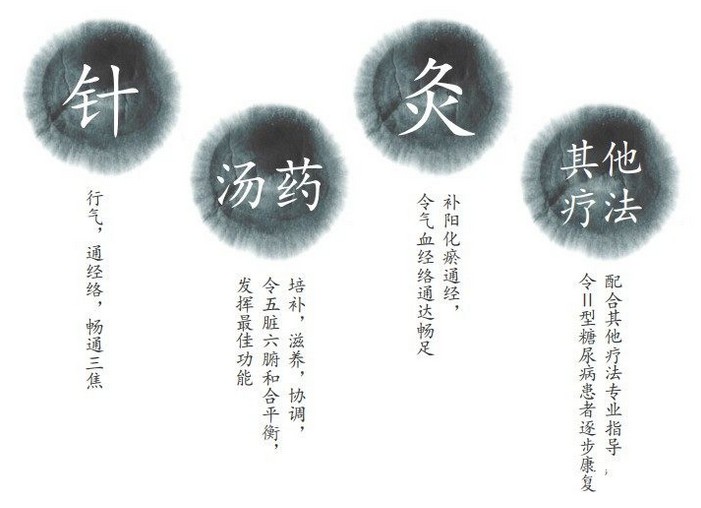 针
行气，通经络，畅通三焦
汤药
培补，滋养，协调，
令五脏六腑和合平衡，
发挥最佳功能
灸
补阳化瘀通经，
令气血经络通达畅足
其他
疗法
配合其他疗法专业指导，
令II型糖尿病患者逐步康复